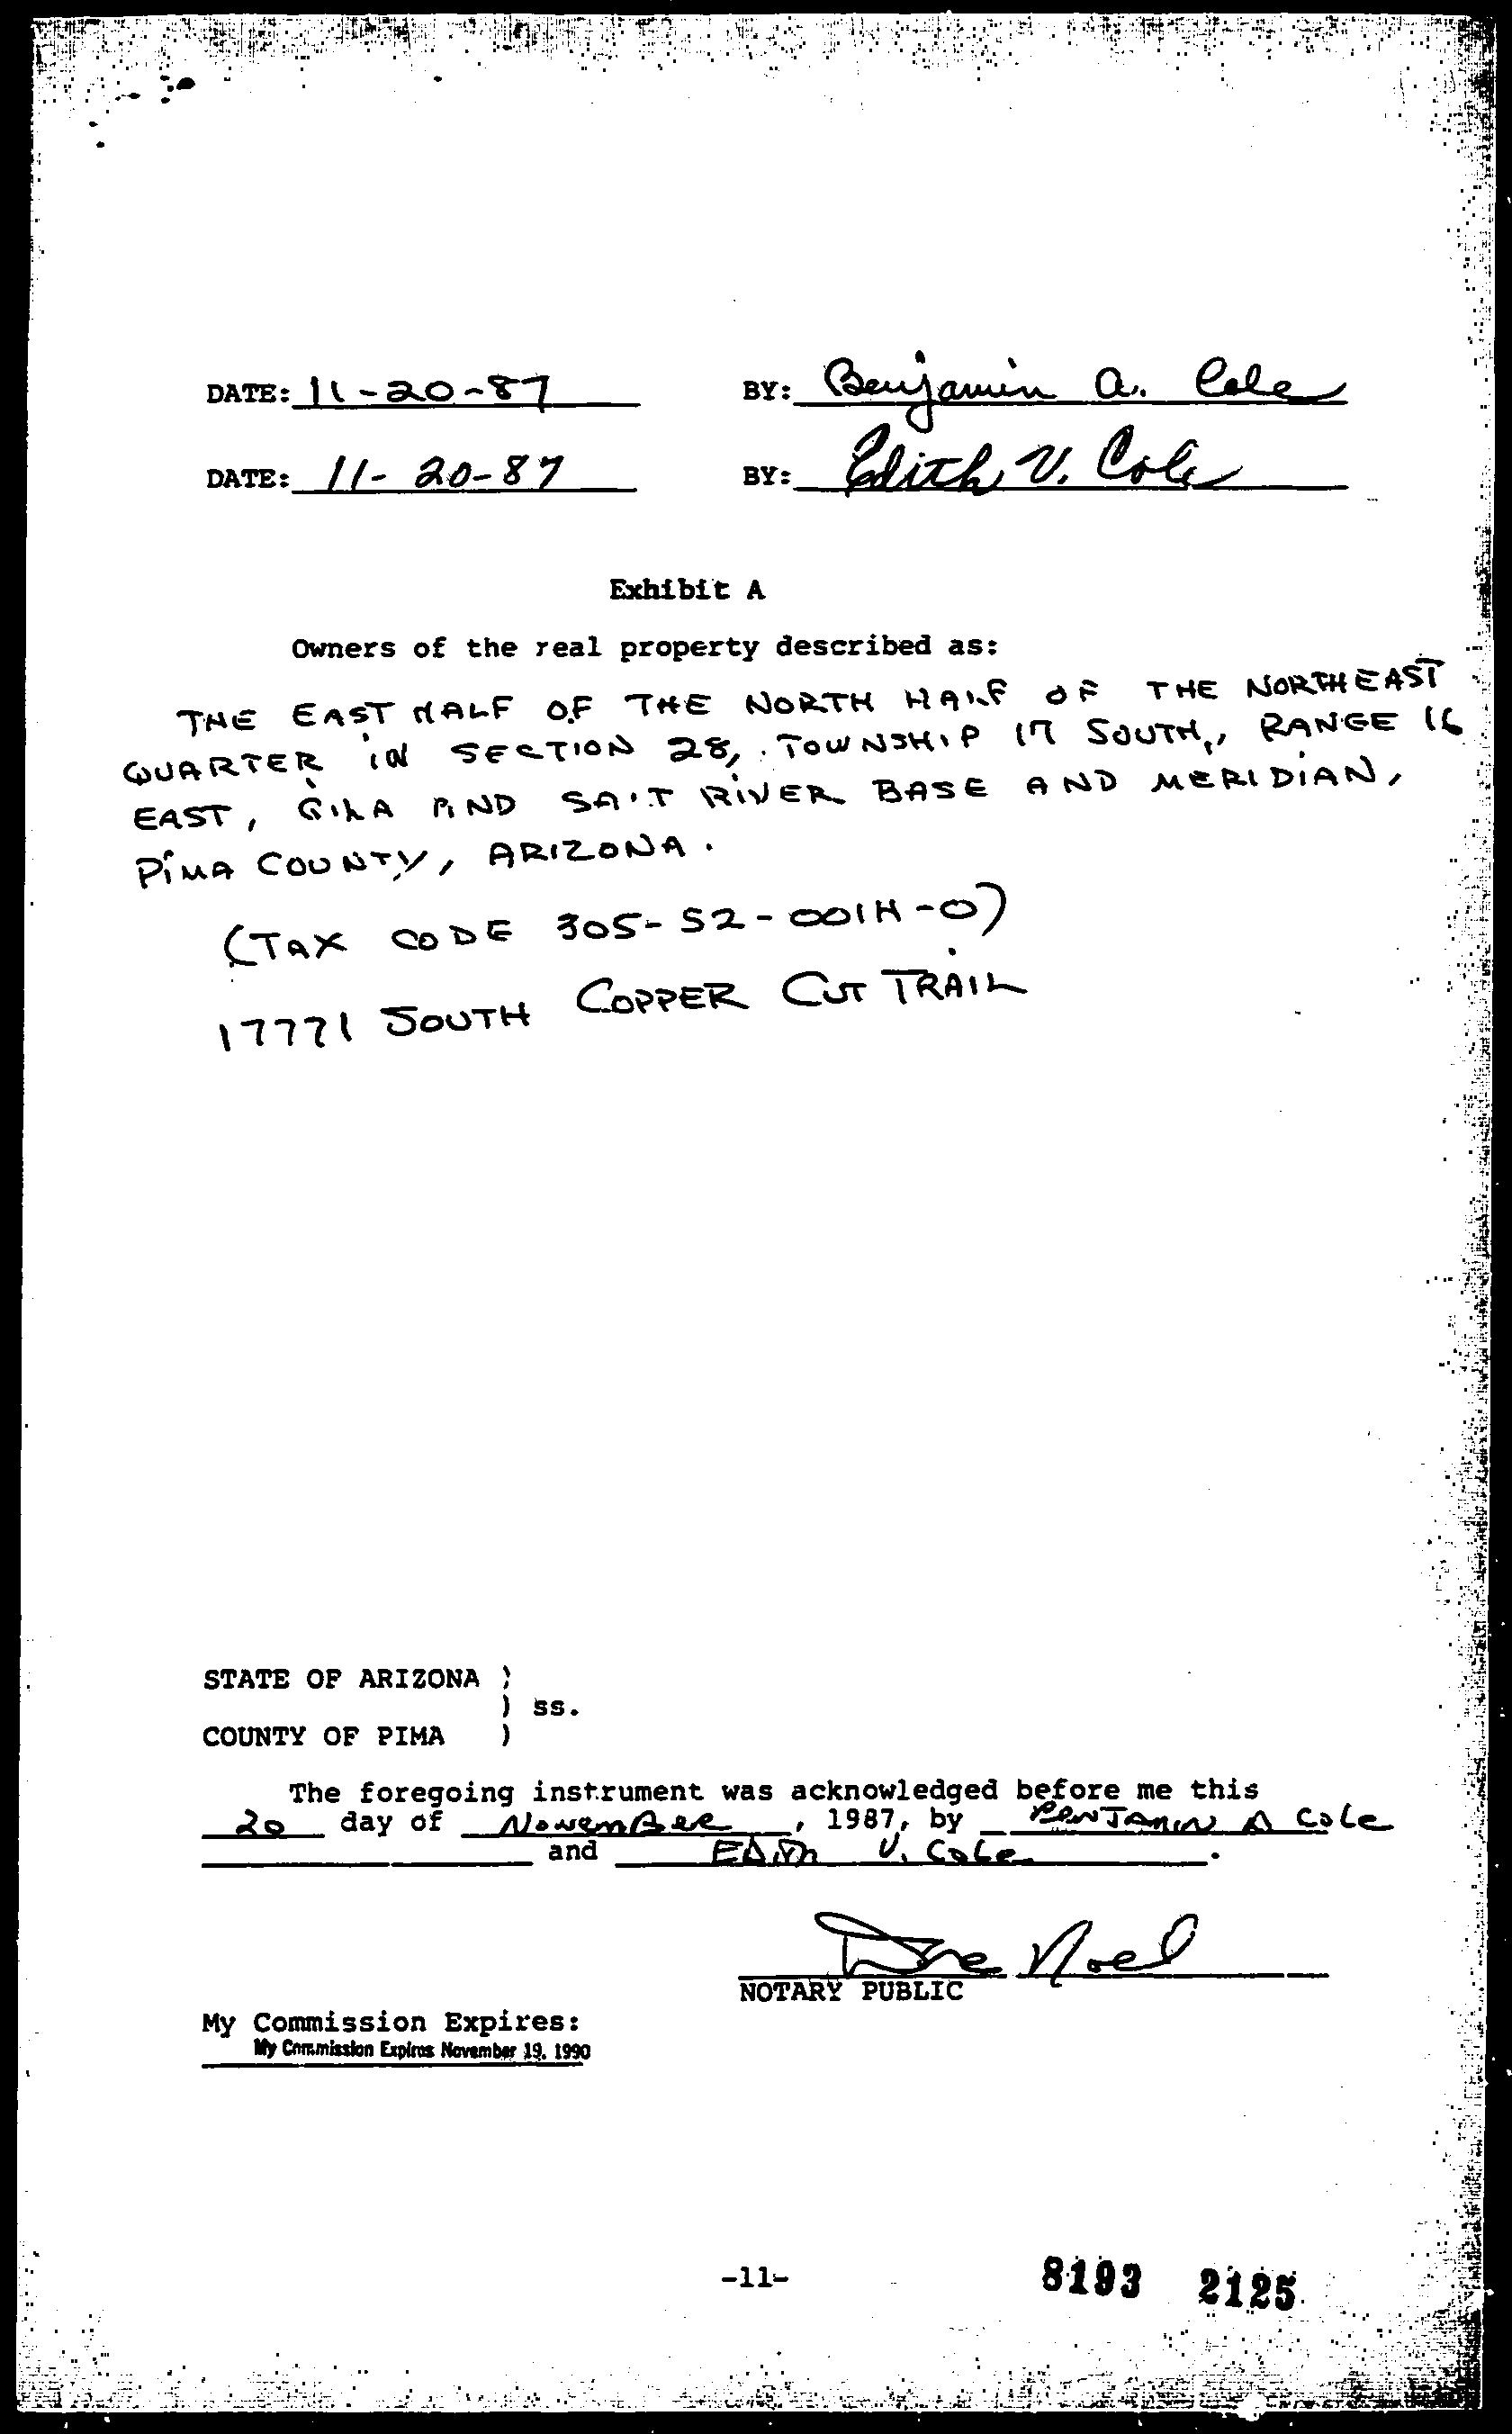 DATE: 11-20-87 BY: Benjamin A. Cole
DATE: 11-20-87 BY: Edith V. Cole
Exhibit A
Owners of the real property described as:
THE EAST HALF OF THE NORTH HALF OF THE NORTHEAST
QUARTER IN SECTION 28, TOWNSHIP 17 SOUTH, RANGE 16
EAST, GILA AND SALT RIVER BASE AND MERIDIAN,
PIMA COUNTY, ARIZONA.
(TAX CODE 305-52-001H-0)
17771 SOUTH COPPER CUT TRAIL
STATE OF ARIZONA )
) ss.
COUNTY OF PIMA )
The foregoing instrument was acknowledged before me this
20 day of November, 1987, by Benjamin A Cole
and Edith V. Cole.
Noel
NOTARY PUBLIC
My Commission Expires:
My Commission Expires November 19, 1990
-11-
8193 2125